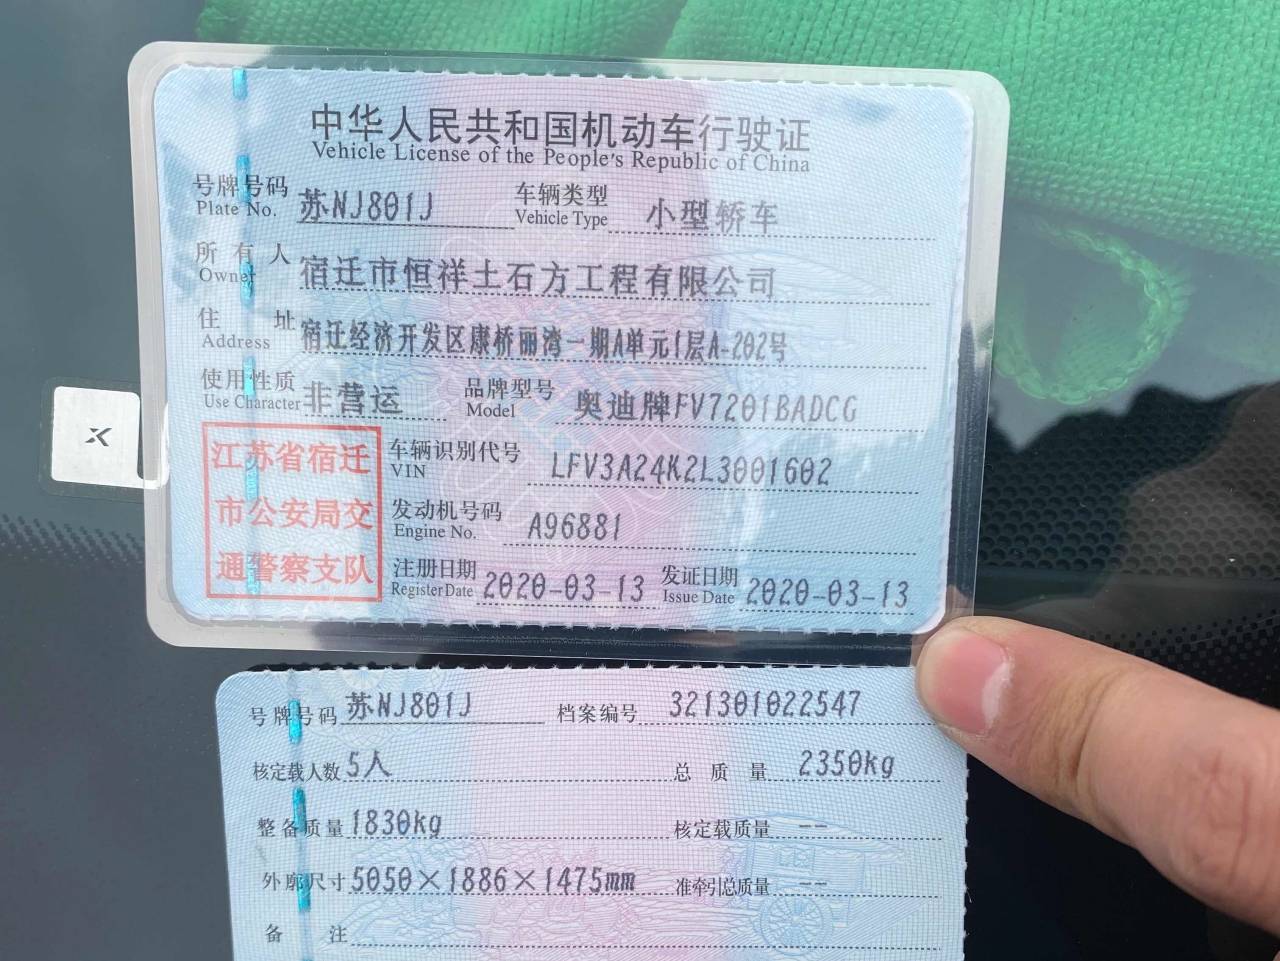 中华人民共和国机动车行驶证
Vehicle License of the People's Republic of China
号牌号码 苏NJ801J 车辆类型 小型轿车
Plate No. Vehicle Type
所有人 宿迁市恒祥土石方工程有限公司
Owner
住址 宿迁经济开发区康桥丽湾一期A单元1层A-202号
Address
使用性质 非营运 品牌型号 奥迪牌FV7201BADCG
Use Character Model
江苏省宿迁
市公安局交
通警察支队
车辆识别代号 LFV3A24K2L3001602
VIN
发动机号码 A96881
Engine No.
注册日期 2020-03-13 发证日期 2020-03-13
Register Date Issue Date
号牌号码 苏NJ801J 档案编号 321301022547
核定载人数 5人 总质量 2350kg
整备质量 1830kg 核定载质量 --
外廓尺寸 5050×1886×1475mm 准牵引总质量 --
备注